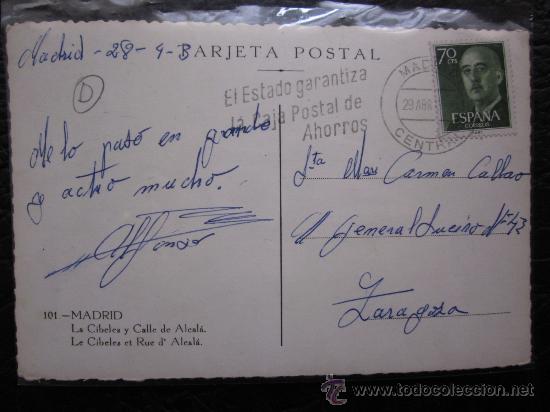 Madrid - 28 - 4 - B
TARJETA POSTAL
D
El Estado garantiza
la Caja Postal de
Ahorros
MAD
29 ABR
CENTR
70
CTS
ESPAÑA
CORREOS
Me lo paso en grande
y actuo mucho.
Alfonso
Srta Mari Carmen Callao
General Nº 43
Zaragoza
101.-MADRID
La Cibeles y Calle de Alcalá.
Le Cibeles et Rue d' Alcalá.
todocoleccion.net